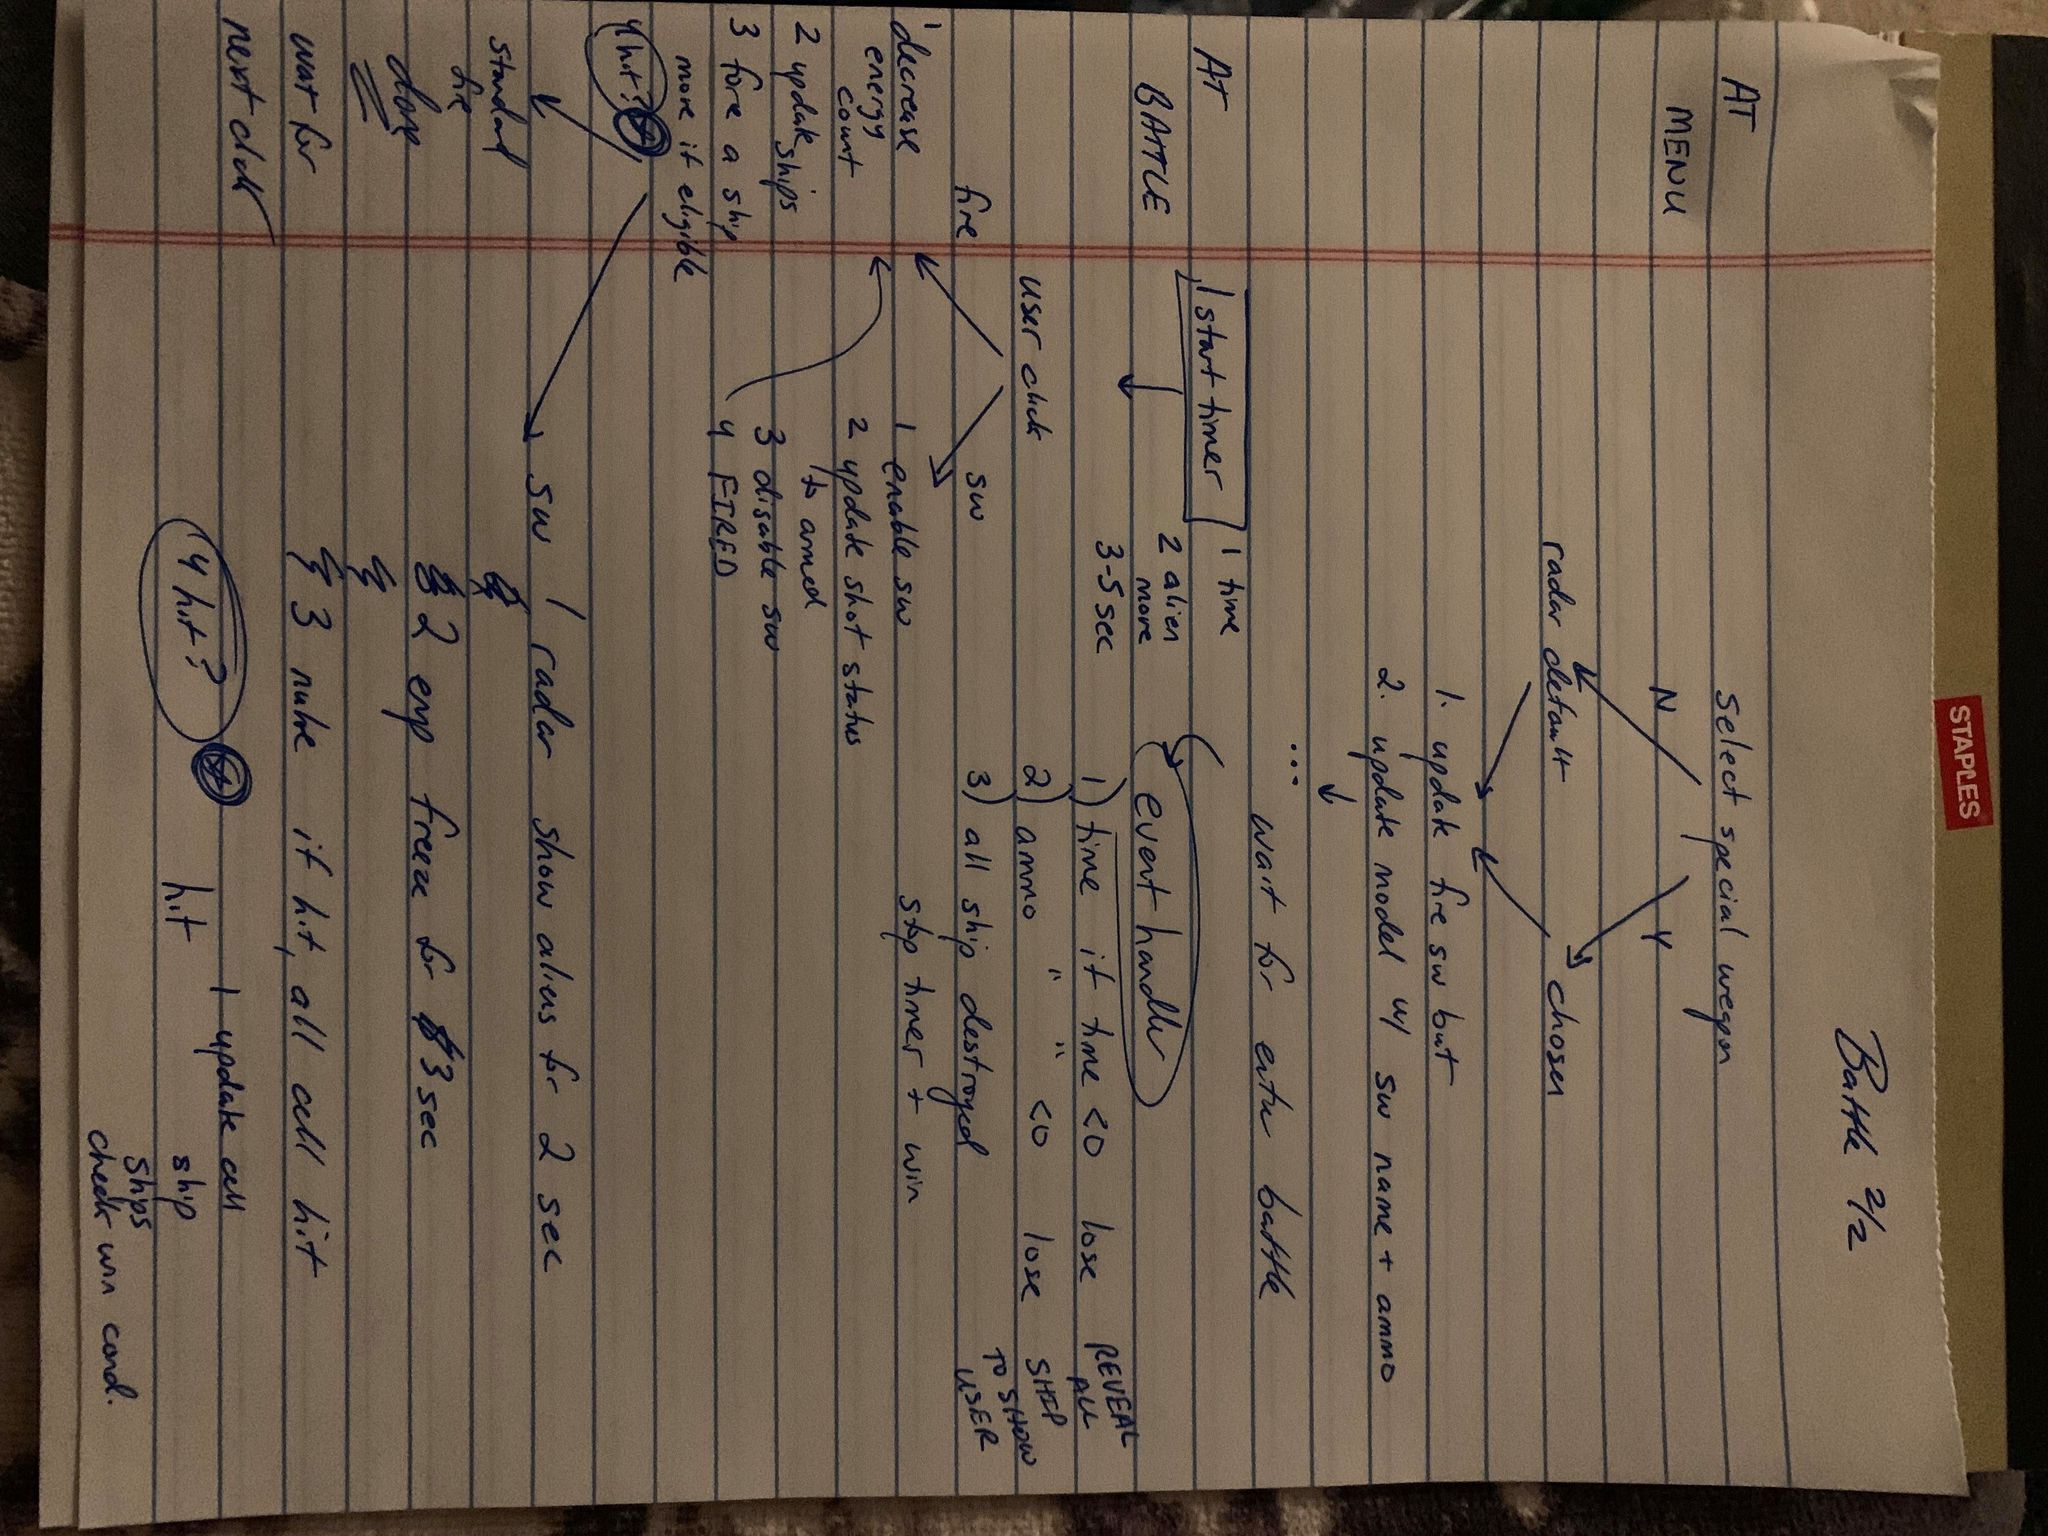 STAPLES
Battle 2/2
AT
MENU
select special weapon
N
Y
radar default
chosen
1. update fire sw but
2. update model w/ sw name + ammo
...
wait for enter battle
AT
BATTLE
1 start timer
1 time
2 alien
move
3-5 sec
event handler
1) time if time <0 lose
2) ammo " " <0 lose
3) all ship destroyed
stop timer + win
REVEAL
ALL
SHIP
TO SHOW
USER
user click
fire
sw
1 decrease
energy
count
2 update ships
3 force a ship
move if eligible
4 hit?
1 enable sw
2 update shot status
to armed
3 disable sw
4 FIRED
standard
fire
done
wait for
next click
sw 1 radar show aliens for 2 sec
2 emp freeze for 3 sec
3 nuke if hit, all cell hit
4 hit?
hit
1 update cell
ship
ships
check win cond.